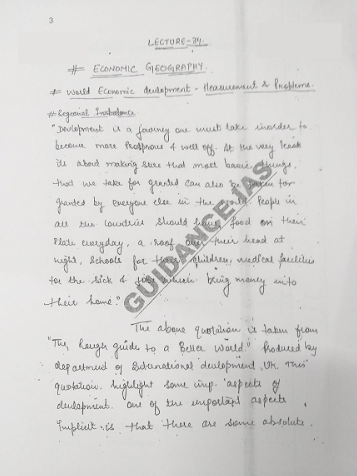 3
LECTURE-34.
# ECONOMIC GEOGRAPHY.
# World Economic development - Measurement & Problems.
# Regional Imbalance
"Development is a journey one must take inorder to
become more prosperous & well off. At the very least
its about making sure that most basic things,
that we take for granted can also be taken for
granted by everyone else in the world. People in
all the countries should have food on their
Plate everyday, a roof over their head at
night, schools for their children, medical facilities
for the sick & jobs which bring money into
their home."
The above quotation is taken from
"The Rough guide to a Better World" Produced by
department of International development, UK. This
quotation highlight some imp. aspects of
development. One of the important aspects
implicit is that there are some absolute
GUIDANCE IAS